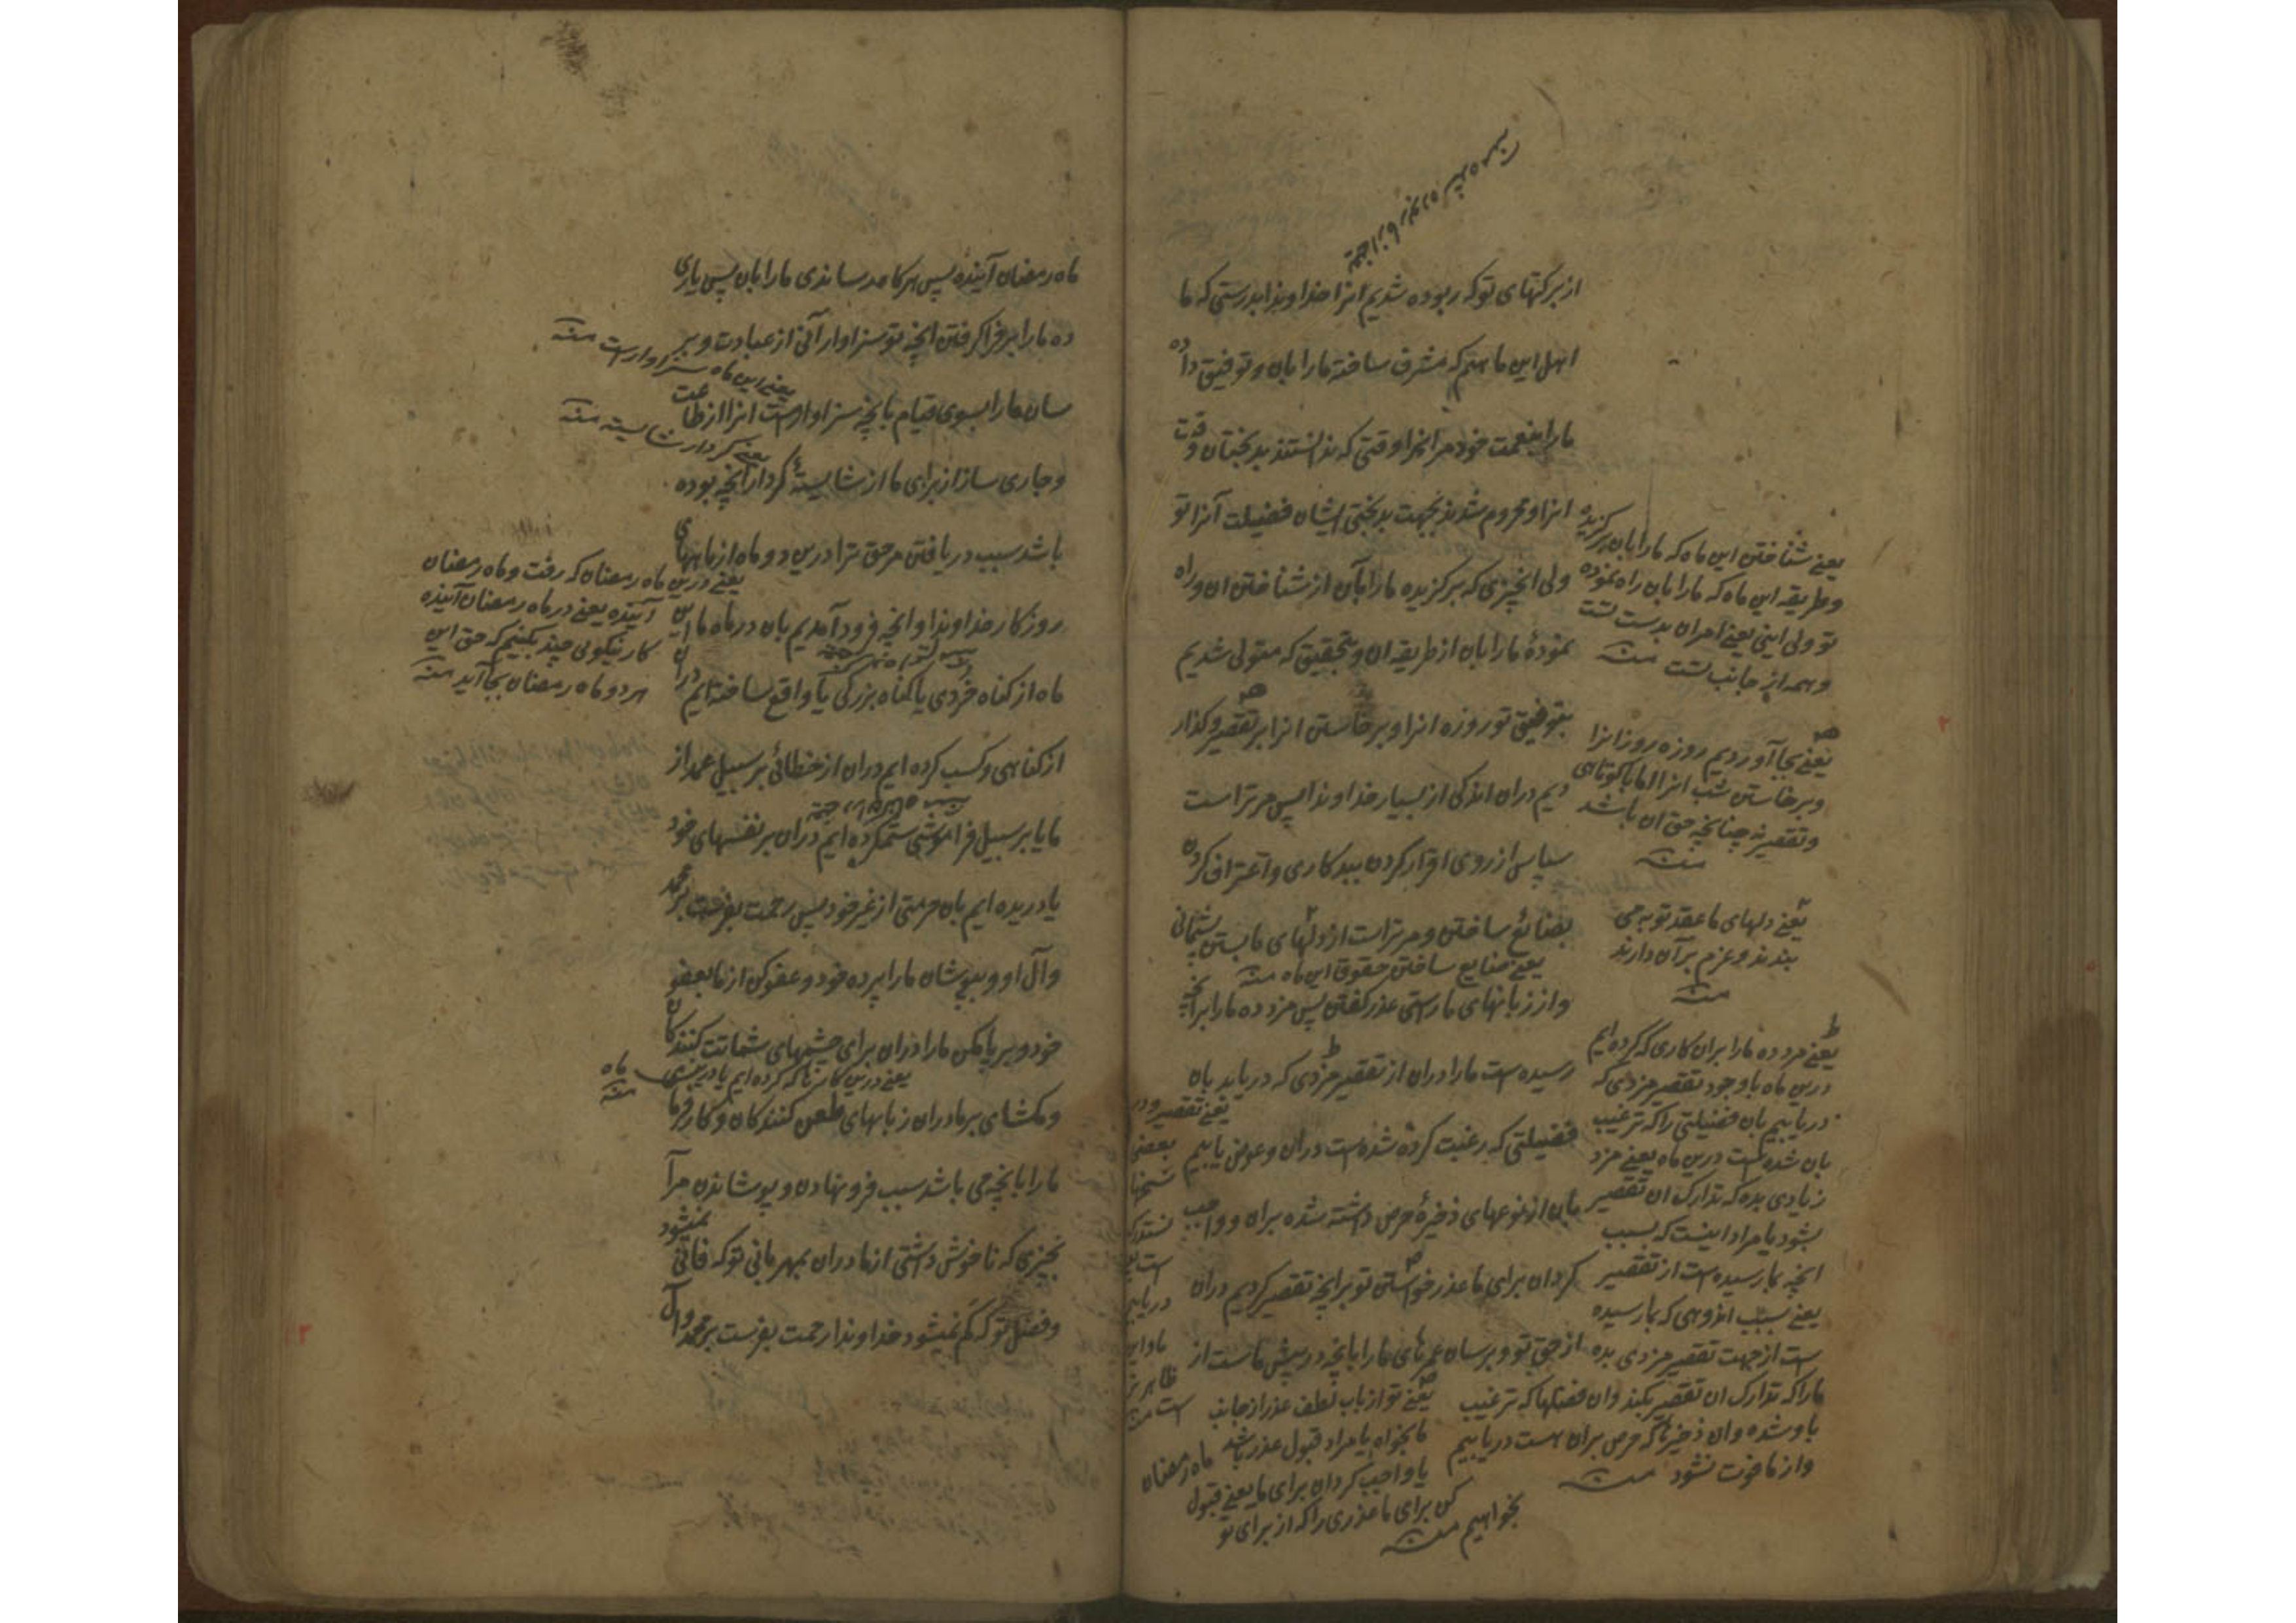 یعنی از ما ربوده شده منه
از برکتهای تو که ربوده شدیم انرا خداوندا بدرستی که ما
اهل این ماهیم که مشرف ساختهٔ ما را بان و توفیق داده
ما را بنعمت خود مر انرا وقتی که ندانستند بدبختان وقت
انرا و محروم شدند بجهت بدبختی ایشان فضیلت آنرا تو
ولی انچیزی که برگزیده ما را بآن از شناختن ان و راه
نمودهٔ ما را بان از طریقه ان و بتحقیق که متولی شدیم
بتوفیق تو روزه انرا و برخاستن انرا بر تقصیر و گذار
دیم دران اندکی از بسیار خداوندا پس مر تراست
سپاس از روی اقرار کردن ببدکاری و اعتراف کردن
بضائع ساختن و مر تراست از دلهای ما بستن پشیمانی
یعنی ضایع ساختن حقوق این ماه منه
و از زبانهای ما راستی عذر گفتن پس مزد ده ما را برانچه
رسیده است ما را دران از تقصیر مزدی که دریابد بان
فضیلتی که رغبت کرده شده است دران و عوض یابیم
بان از نوعهای ذخیرهٔ حرص داشته شده بران و واجب
گردان برای ما عذر خواستن تو بر انچه تقصیر کردیم دران
از حق تو و برسان عمرهای ما را بانچه در پیش ماست از
ماه رمضان
یعنی شناختن این ماه که ما را بان برگزیده
و طریقه این ماه که ما را بان راه نموده
تو ولی اینی یعنی امر ان بدست تست
و همه از جانب تست منه
یعنی بجا آوردیم روزه روز انرا
و برخاستن شب انرا اما با کوتاهی
و تقصیر نه چنانچه حق ان باشد
منه
یعنی دلهای ما عقد توبه می
بندند و عزم بر آن دارند
منه
یعنی مزد ده ما را بران کاری که کرده ایم
درین ماه با وجود تقصیر مزدی که
دریابیم بان فضیلتی را که ترغیب
بان شده است درین ماه یعنی مزد
زیادی بده که تدارک ان تقصیر
بشود یا مراد اینست که بسبب
انچه بما رسیده است از تقصیر
یعنی بسبب اندوهی که بما رسیده
است از جهت تقصیر مزدی بده
ما را که تدارک ان تقصیر بکند و ان فضلها که ترغیب
باو شده و ان ذخیرها که حرص بران هست دریابیم
و از ما فوت نشود منه
یعنی تو از باب لطف عذر از جانب
ما بخواه یا مراد قبول عذر باشد
یا واجب گردان برای ما یعنی قبول
کن برای ما عذری را که از برای تو
بخواهیم منه
ماه رمضان آینده پس هرگاه رساندی ما را بان پس یاری
ده ما را بر فرا گرفتن انچه تو سزاوار آنی از عبادت و بر
یعنی این ماه سزاوار است منه
سان ما را بسوی قیام بانچه سزاوار است انرا از طاعت
یعنی کردار شایسته منه
و جاری ساز از برای ما از شایستهٔ کردار انچه بوده
باشد سبب دریافتن مر حق ترا درین دو ماه از ماههای
روزگار خداوندا و انچه فرود آمدیم بان در ماه ما این
ماه از گناه خردی یا گناه بزرگی یا واقع ساخته ایم دران
از گناهی و کسب کرده ایم دران از خطائی بر سبیل عمد از
ما یا بر سبیل فراموشی ستم کرده ایم دران بر نفسهای خود
یا دریده ایم بان حرمتی از غیر خود پس رحمت بفرست بر محمد
و آل او و بپوشان ما را بپرده خود و عفو کن از ما بعفو
خود و بر پا مکن ما را دران برای چشمهای شماتت کنندگان
یعنی درین کارها که کرده ایم یا درین ماه منه
و مگشای بر ما دران زبانهای طعن کنندگان و کار فرما
ما را بانچه می باشد سبب فرو نهادن و پوشاندن مر آ
نچیزی که ناخوش داشتی از ما دران بمهربانی تو که فانی نمیشود
و فضل تو که کم نمیشود خداوندا رحمت بفرست بر محمد و آل
یعنی درین ماه رمضان که رفت و ماه رمضان
آینده یعنی در ماه رمضان آینده
کار نیکوئی چند بکنیم که حق این
هر دو ماه رمضان بجا آید منه